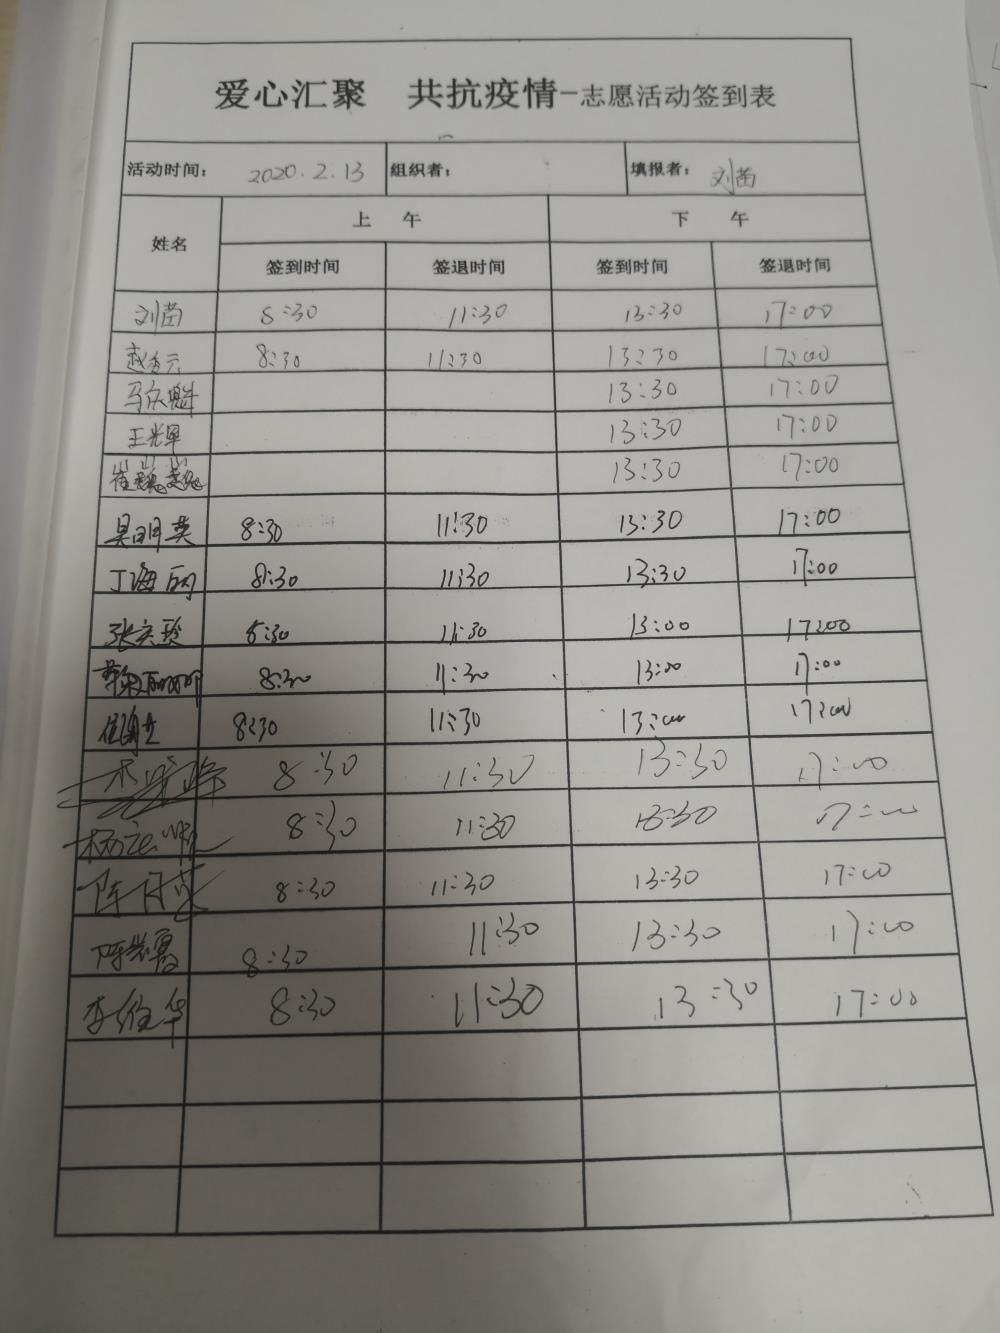 爱心汇聚 共抗疫情-志愿活动签到表
活动时间： 2020.2.13 组织者： 填报者： 刘苗
姓名 上 午 下 午
签到时间 签退时间 签到时间 签退时间
刘苗 8:30 11:30 13:30 17:00
赵秀云 8:30 11:30 13:30 17:00
13:30 17:00
13:30 17:00
13:30 17:00
吴明英 8:30 11:30 13:30 17:00
丁海丽 8:30 11:30 13:30 17:00
8:30 11:30 13:00 17:00
8:30 11:30 13:00 17:00
8:30 11:30 13:00 17:00
8:30 11:30 13:30 17:00
8:30 11:30 13:30 17:00
8:30 11:30 13:30 17:00
8:30 11:30 13:30 17:00
李维华 8:30 11:30 13:30 17:00